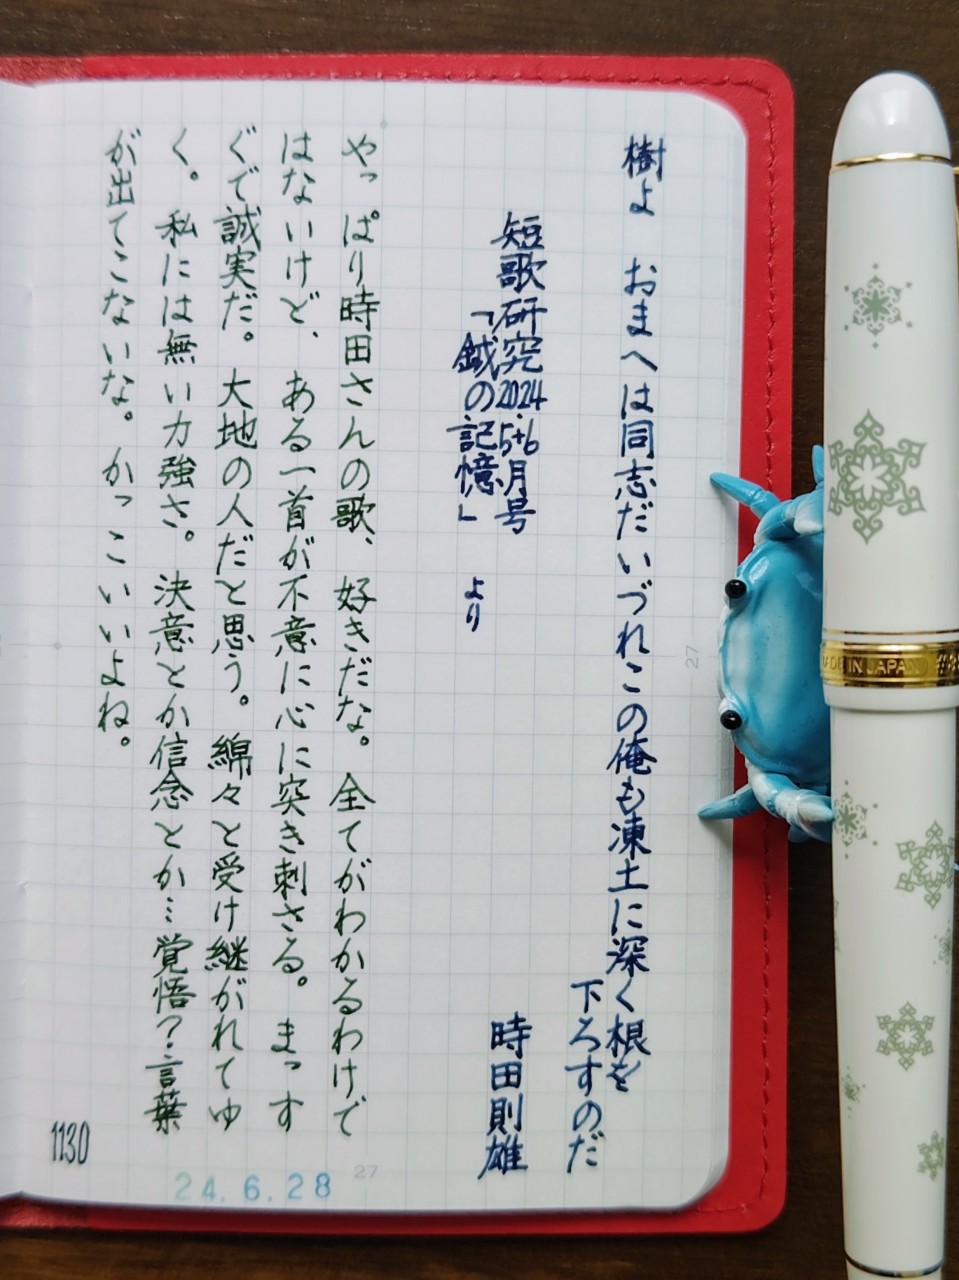 樹よ　おまへは同志だいづれこの俺も凍土に深く根を
下ろすのだ
短歌研究2024.5+6月号
「鉞の記憶」　より
時田則雄
やっぱり時田さんの歌、好きだな。全てがわかるわけで
はないけど、ある一首が不意に心に突き刺さる。まっす
ぐで誠実だ。大地の人だと思う。綿々と受け継がれてゆ
く。私には無い力強さ。決意とか信念とか…覚悟？言葉
が出てこないな。かっこいいよね。
1130
24.6.28
27
27
MADE IN JAPAN